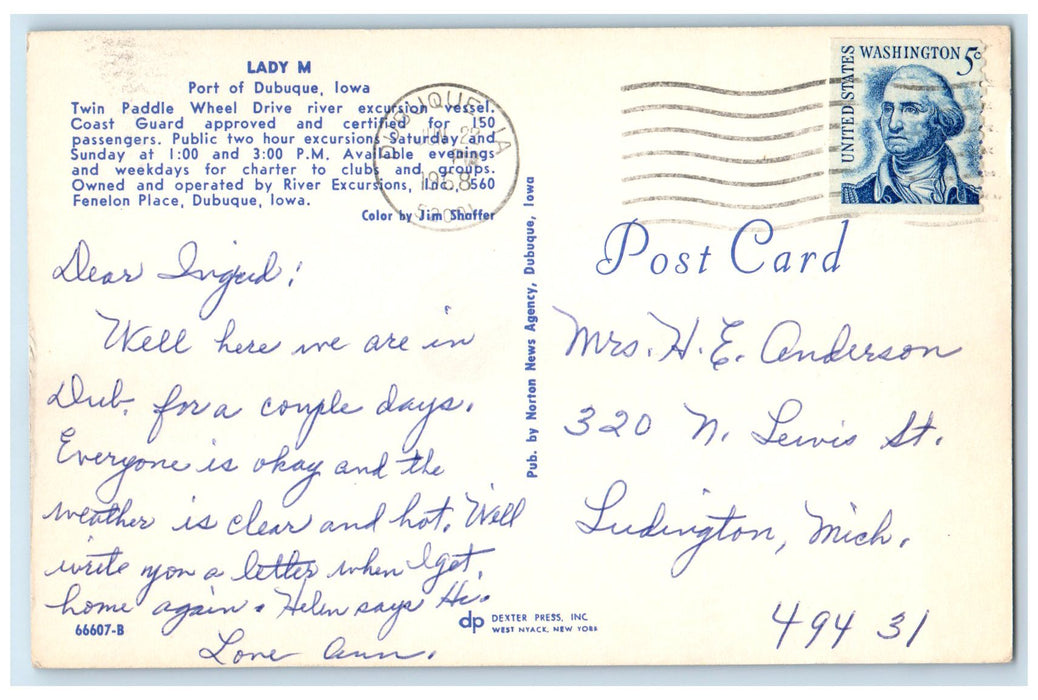 LADY M
Port of Dubuque, Iowa
Twin Paddle Wheel Drive river excursion vessel.
Coast Guard approved and certified for 150
passengers. Public two hour excursions Saturday and
Sunday at 1:00 and 3:00 P.M. Available evenings
and weekdays for charter to clubs and groups.
Owned and operated by River Excursions, Inc., 560
Fenelon Place, Dubuque, Iowa.
Color by Jim Shaffer
DUBUQUE, IA
PM
1968
UNITED STATES
WASHINGTON 5c
Dear Ingrid:
Well here we are in
Dub. for a couple days.
Everyone is okay and the
weather is clear and hot. Will
write you a letter when I get
home again. Helen says Hi.
Love Ann.
66607-B
Pub. by Norton News Agency, Dubuque, Iowa
dp DEXTER PRESS, INC
WEST NYACK, NEW YORK
Post Card
Mrs. H. E. Anderson
320 N. Lewis St.
Ludington, Mich.
49431